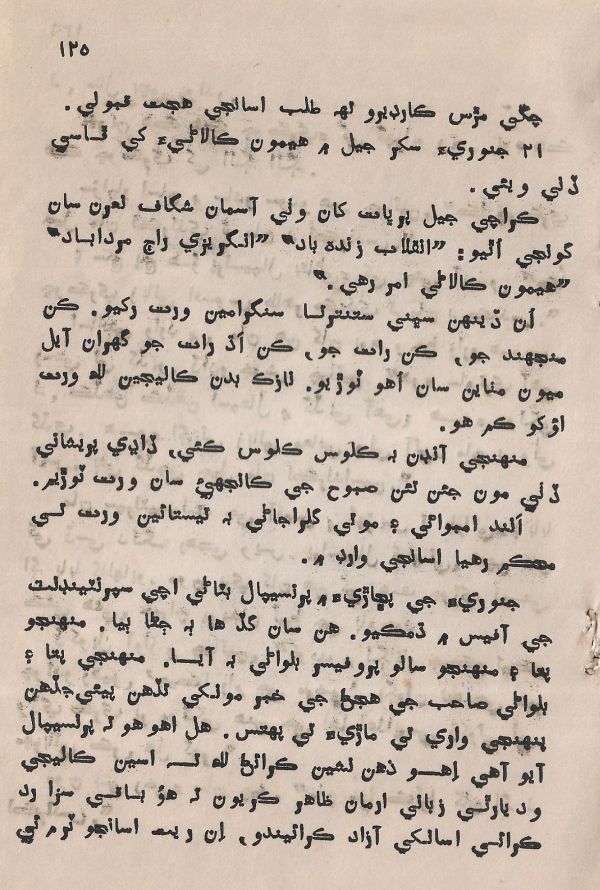 ۱۲۵
چڱي مڙس ڪارڊيرو تھ طلب اسانجي هجت قبولي.
۲۱ جنوريءَ سکر جيل ۾ هيمون ڪالاڻيءَ کي ڦاسي
ڏني ويئي.
ڪراچي جيل پرڀات کان وٺي آسمان شگاف نعرن سان
گونجي اٿيو: ”انقلاب زنده باد“ ”انگريزي راڄ مرداباد“
”هيمون ڪالاڻي امر رهي.“
اُن ڏينهن سڀني ستنترتا سنگرامين ورت رکيو. ڪن
منجهند جو، ڪن رات جو، ڪن اڌ رات جو گهران آيل
ميون مٺاين سان اُهو ٽوڙيو. نازڪ بدن ڪاليجين لاءِ ورت
اڙکو ڪم هو.
منهنجي آنڊن بہ ڪلوس ڪلوس ڪئي، ڏاڍي پريشاني
ڏني مون جئن تئن صبوح جي ڪانجهيءَ سان ورت ٽوڙيم.
آنند امبواڻي ۽ موتي گلراجاڻي بہ ٽيستائين ورت تي
محڪم رهيا اسانجي وارڊ ۾.
جنوريءَ جي پڇاڙيءَ ۾ پرنسيپال بٽاڻي اچي سپرنٽينڊنٽ
جي آفيس ۾ ڌمڪيو. هن سان گڏ ها بہ ڄڻا ٻيا. منهنجو
پٽا ۽ منهنجو سالو پروفيسر بلواڻي بہ آيا. منهنجي پٽا ۽
بلواڻي صاحب جي هجڻ جي خبر مونکي تڏهن پيئي جڏهن
پنهنجي واري تي ماڙيءَ تي پهتس. هل اهو هو تہ پرنسيپال
آيو آهي اِهو ذهن نشين ڪرائڻ لاءِ تہ اسين ڪاليجي
وديارٿي زباني ارمان ظاهر ڪريون تہ هُو باقي سزا رد
ڪرائي اسانکي آزاد ڪرائيندو، اِن ريت اسانجو ٽرم ئي